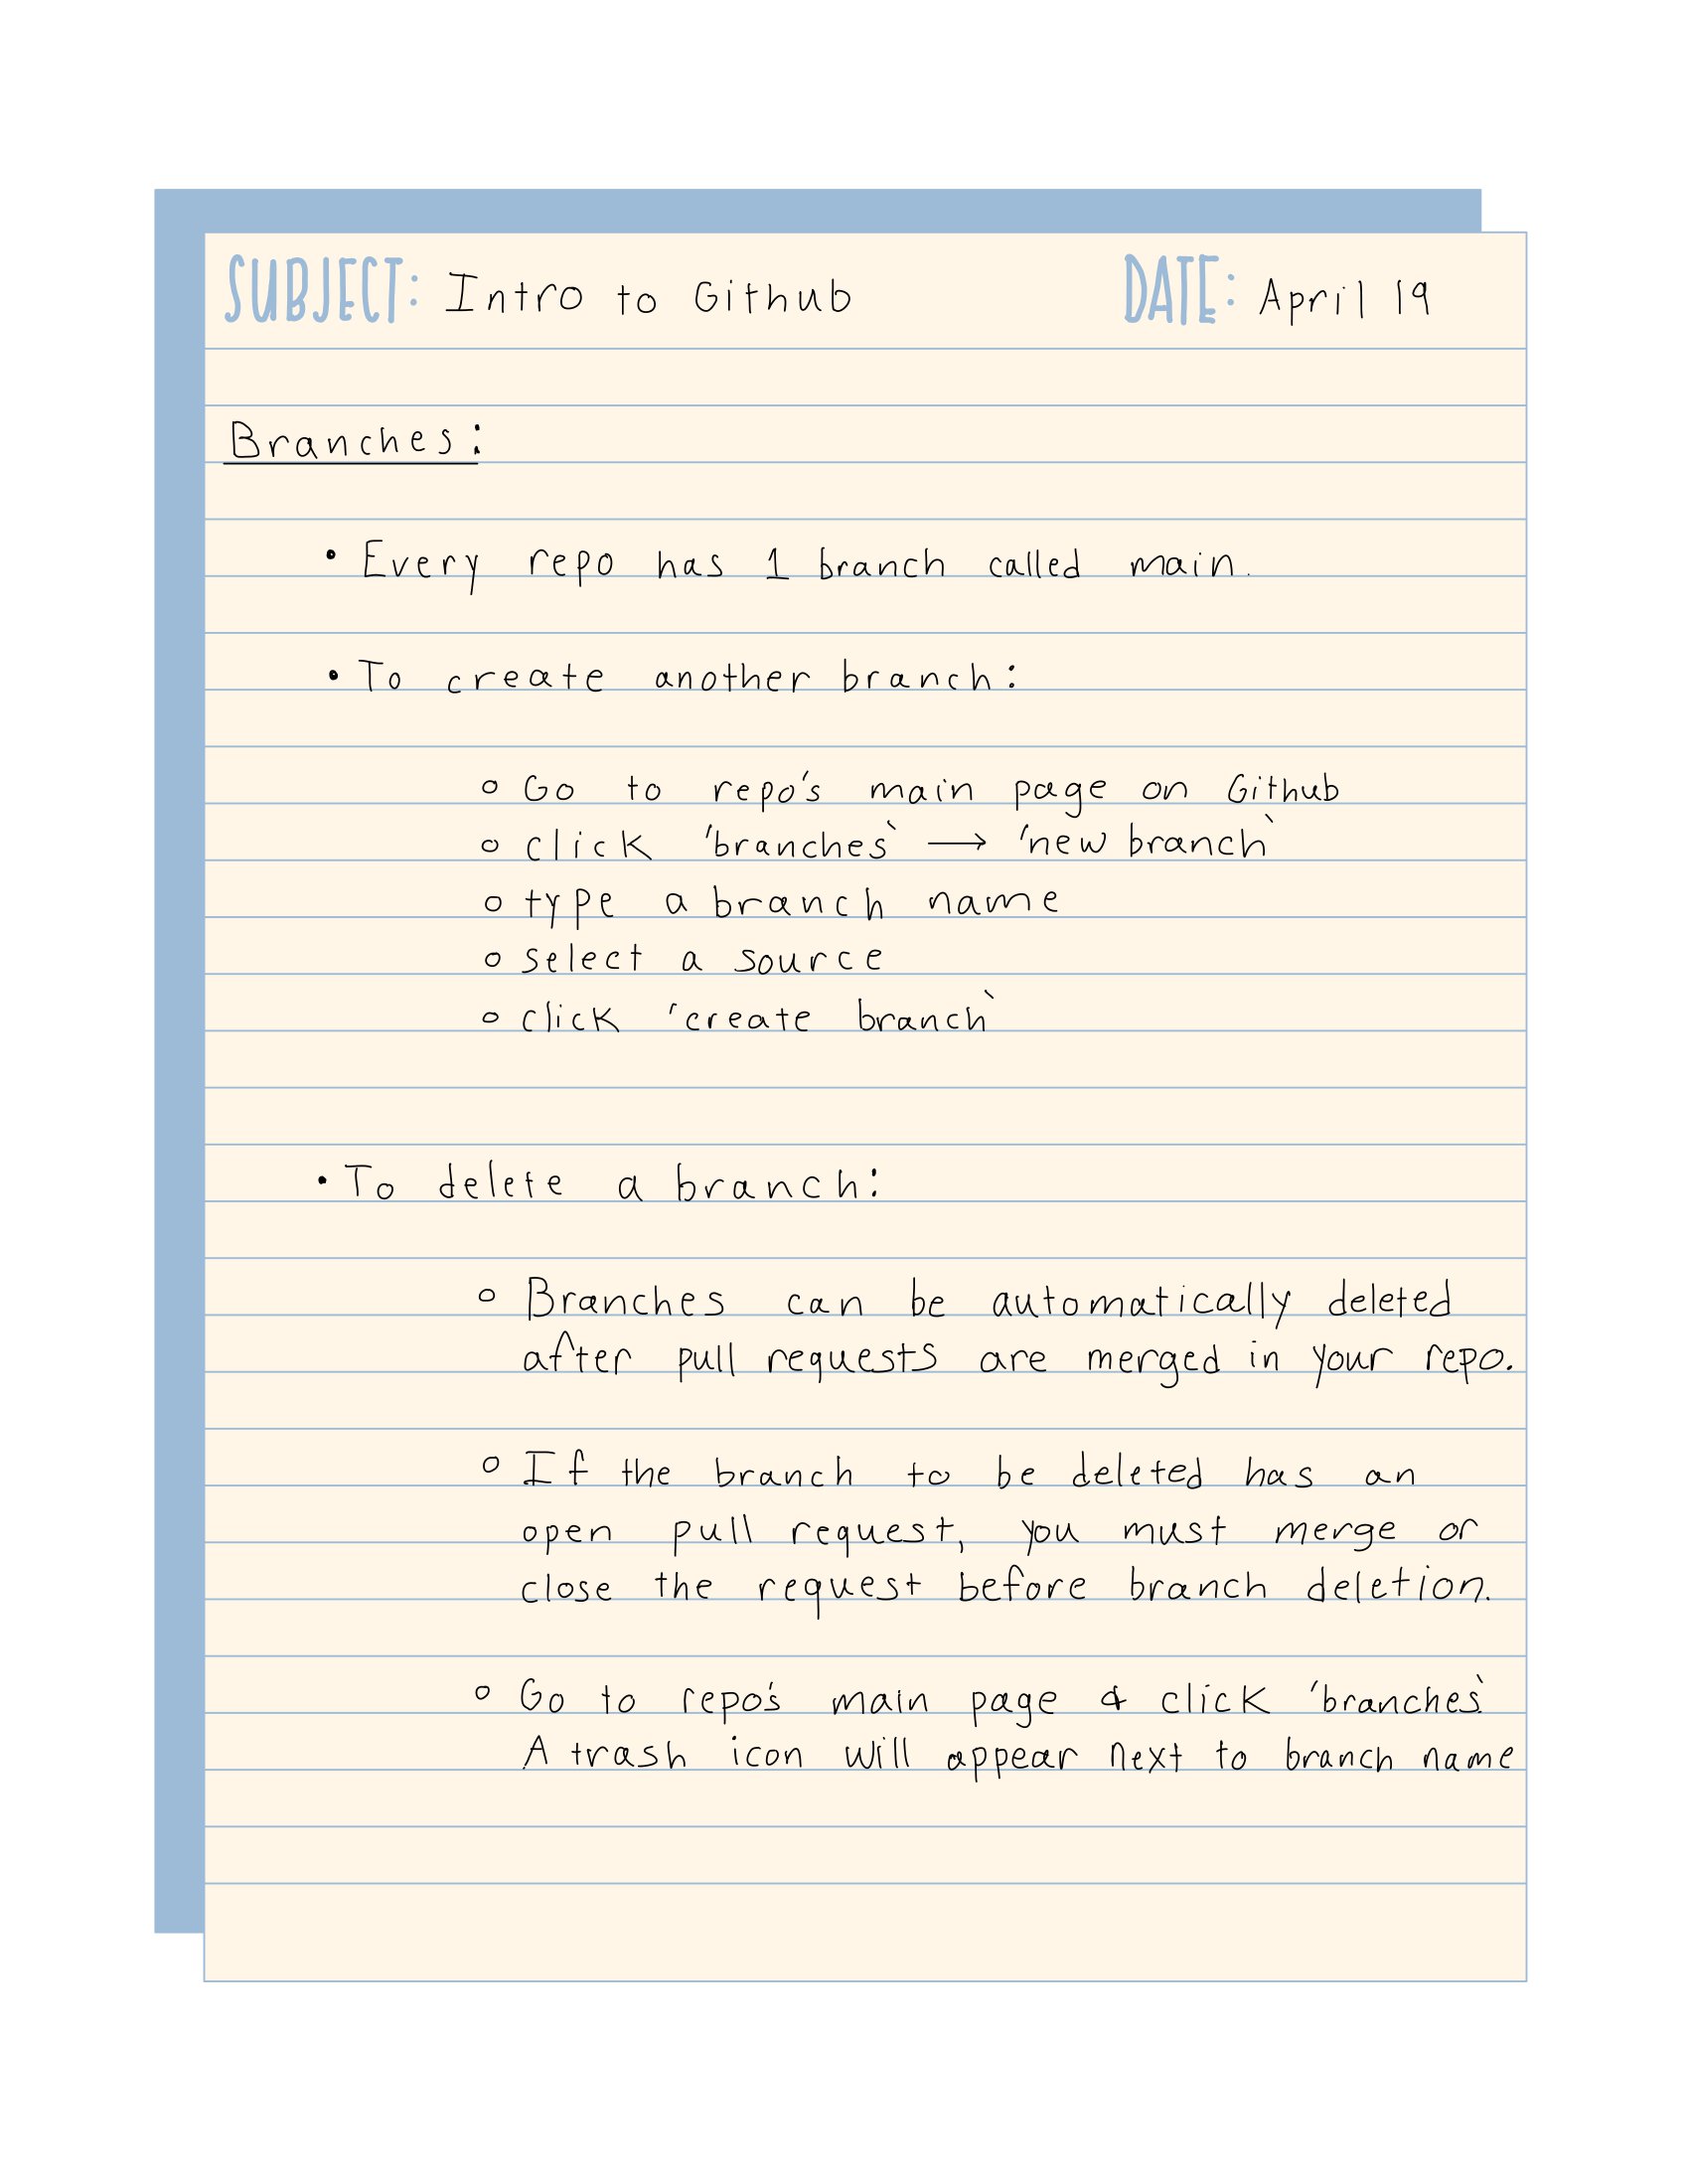 SUBJECT: Intro to Github DATE: April 19
Branches:
• Every repo has 1 branch called main.
• To create another branch:
◦ Go to repo's main page on Github
◦ click 'branches` → 'new branch`
◦ type a branch name
◦ select a source
◦ click 'create branch`
• To delete a branch:
◦ Branches can be automatically deleted
after pull requests are merged in your repo.
◦ If the branch to be deleted has an
open pull request, you must merge or
close the request before branch deletion.
◦ Go to repo's main page & click 'branches`
A trash icon will appear next to branch name